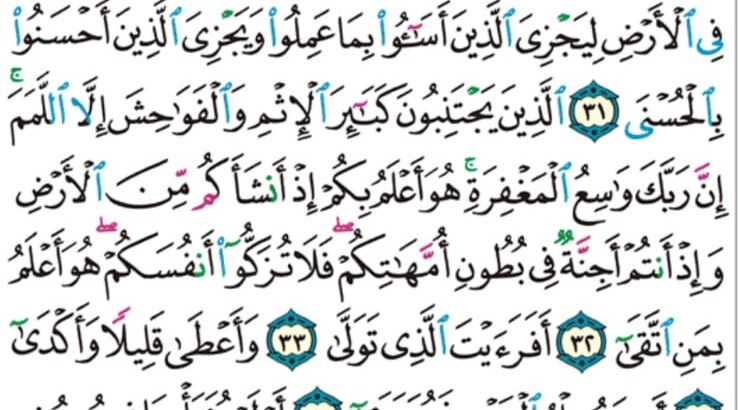 فِى ٱلْأَرْضِ لِيَجْزِىَ ٱلَّذِينَ أَسَـٰٓـُٔوا۟ بِمَا عَمِلُوا۟ وَيَجْزِىَ ٱلَّذِينَ أَحْسَنُوا۟
بِٱلْحُسْنَى ٣١ ٱلَّذِينَ يَجْتَنِبُونَ كَبَـٰٓئِرَ ٱلْإِثْمِ وَٱلْفَوَٰحِشَ إِلَّا ٱللَّمَمَ ۚ
إِنَّ رَبَّكَ وَٰسِعُ ٱلْمَغْفِرَةِ ۚ هُوَ أَعْلَمُ بِكُمْ إِذْ أَنشَأَكُم مِّنَ ٱلْأَرْضِ
وَإِذْ أَنتُمْ أَجِنَّةٌ فِى بُطُونِ أُمَّهَـٰتِكُمْ ۖ فَلَا تُزَكُّوٓا۟ أَنفُسَكُمْ ۖ هُوَ أَعْلَمُ
بِمَنِ ٱتَّقَىٰٓ ٣٢ أَفَرَءَيْتَ ٱلَّذِى تَوَلَّىٰ ٣٣ وَأَعْطَىٰ قَلِيلًا وَأَكْدَىٰٓ